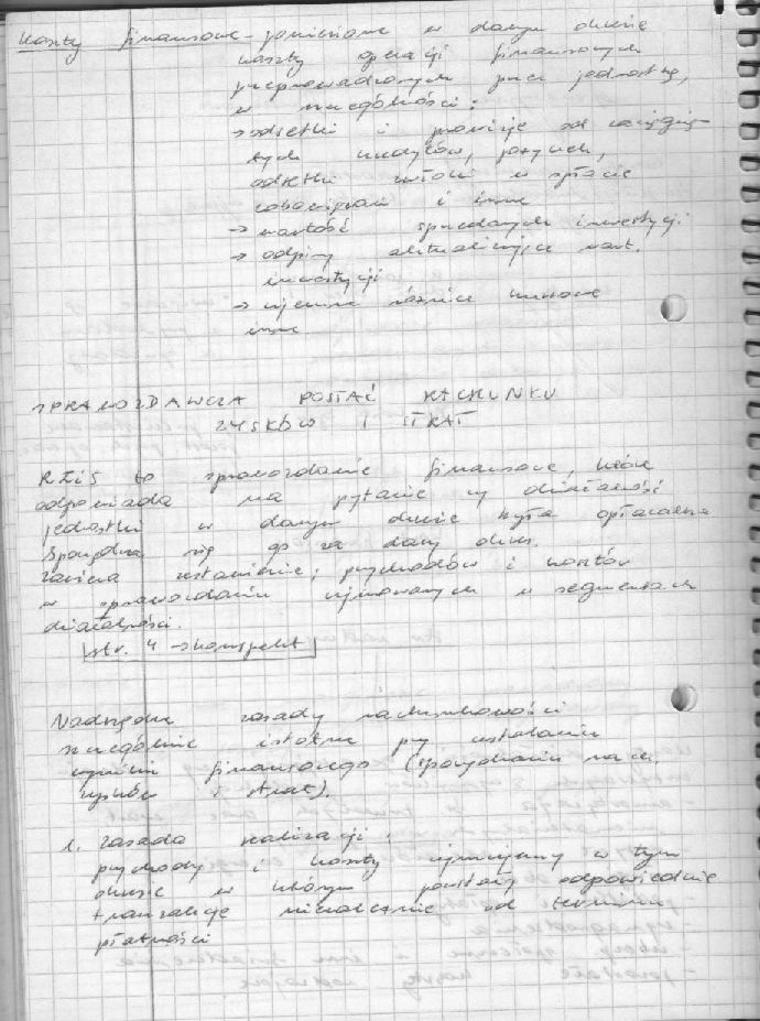 Koszty finansowe - poniesione w danym okresie
koszty operacji finansowych
przeprowadzonych przez jednostkę,
w szczególności:
→ odsetki i prowizje od zaciągnię-
tych kredytów, pożyczek,
odsetki zwłoki w spłacie
zobowiązań i inne
→ wartość sprzedanych inwestycji
→ odpisy aktualizujące wart.
inwestycji
→ ujemne różnice kursowe
inne
SPRAWOZDAWCZA POSTAĆ RACHUNKU
ZYSKÓW I STRAT
RZiS to sprawozdanie finansowe, które
odpowiada na pytanie czy działalność
jednostki w danym okresie była opłacalna
Sporządza się go za dany okres.
Zawiera zestawienie; przychodów i kosztów
w sprawozdaniu ujmowanych w segmentach
działalności.
str. 4 → konspekt
Nadrzędne zasady rachunkowości
szczególnie istotne przy ustalaniu
wyniku finansowego (sporządzaniu rach.
zysków i strat).
1. Zasada realizacji:
przychody i koszty ujmujemy w tym
okresie w którym powstały odpowiednie
transakcje niezależnie od terminu
płatności